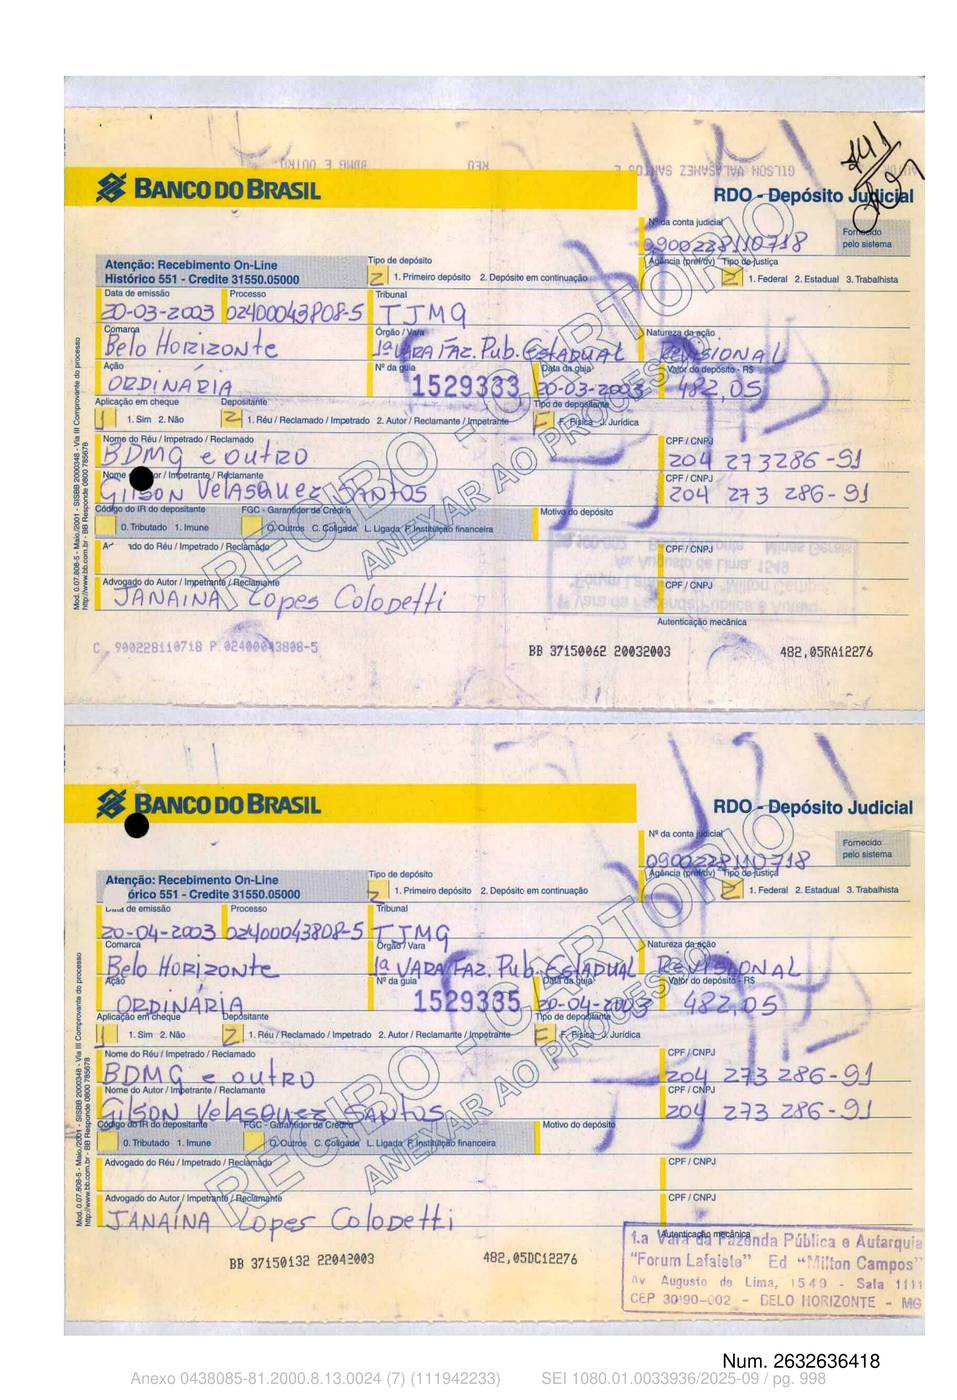 741
BANCO DO BRASIL
RDO - Depósito Judicial
Nº da conta judicial
0900228110718
Fornecido
pelo sistema
Atenção: Recebimento On-Line
Histórico 551 - Credite 31550.05000
Tipo de depósito
2 1. Primeiro depósito 2. Depósito em continuação
Agência (pref/dv) Tipo de justiça
2 1. Federal 2. Estadual 3. Trabalhista
Data de emissão Processo Tribunal
20-03-2003 02400043808-5 TJMG
Comarca Órgão / Vara Natureza da ação
Belo HORIZONTE 1ª VARA FAZ. Pub. EstADUAL REVISIONAL
Ação Nº da guia Data da guia Valor do depósito - R$
ORDINÁRIA 1529333 20-03-2003 482,05
Aplicação em cheque Depositante Tipo de depositante
1 1. Sim 2. Não 2 1. Réu / Reclamado / Impetrado 2. Autor / Reclamante / Impetrante F F. Física J. Jurídica
Nome do Réu / Impetrado / Reclamado CPF / CNPJ
BDMG e outRO 204 273286-91
Nome or / Impetrante / Reclamante CPF / CNPJ
GILSON VelASquez SANTOS 204 273 286-91
Código do IR do depositante FGC - Garantidor de Crédito Motivo do depósito
0. Tributado 1. Imune O. Outros C. Coligada L. Ligada F. Instituição financeira
A do do Réu / Impetrado / Reclamado CPF / CNPJ
Advogado do Autor / Impetrante / Reclamante CPF / CNPJ
JANAINA Lopes Colodetti
Autenticação mecânica
C. 900228110718 P.02400043808-5 BB 37150062 20032003 482,05RA12276
Mod. 0.07.808-5 - Maio/2001 - SISBB 2000348 - Via III Comprovante do processo
http://www.bb.com.br - BB Responde 0800 785678
RECIBO - CARTÓRIO
ANEXAR AO PROCESSO
BANCO DO BRASIL
RDO - Depósito Judicial
Nº da conta judicial
0900228110718
Fornecido
pelo sistema
Atenção: Recebimento On-Line
órico 551 - Credite 31550.05000
Tipo de depósito
2 1. Primeiro depósito 2. Depósito em continuação
Agência (pref/dv) Tipo de justiça
2 1. Federal 2. Estadual 3. Trabalhista
de emissão Processo Tribunal
20-04-2003 02400043808-5 TJMG
Comarca Órgão / Vara Natureza da ação
Belo HORIZONTE 1ª VARA FAZ. Pub. EstADUAL REVISIONAL
Ação Nº da guia Data da guia Valor do depósito - R$
ORDINÁRIA 1529335 20-04-2003 482,05
Aplicação em cheque Depositante Tipo de depositante
1 1. Sim 2. Não 2 1. Réu / Reclamado / Impetrado 2. Autor / Reclamante / Impetrante F F. Física J. Jurídica
Nome do Réu / Impetrado / Reclamado CPF / CNPJ
BDMG e outRO 204 273 286-91
Nome do Autor / Impetrante / Reclamante CPF / CNPJ
GILSON VelASquez SANTOS 204 273 286-91
Código do IR do depositante FGC - Garantidor de Crédito Motivo do depósito
0. Tributado 1. Imune O. Outros C. Coligada L. Ligada F. Instituição financeira
Advogado do Réu / Impetrado / Reclamado CPF / CNPJ
Advogado do Autor / Impetrante / Reclamante CPF / CNPJ
JANAÍNA Lopes Colodetti
Autenticação mecânica
1.a Vara da Fazenda Pública e Autarquia
"Forum Lafaiete" Ed "Milton Campos"
Av Augusto de Lima, 1549 - Sala 1111
CEP 30190-002 - BELO HORIZONTE - MG
BB 37150132 22042003 482,05DC12276
Mod. 0.07.808-5 - Maio/2001 - SISBB 2000348 - Via III Comprovante do processo
http://www.bb.com.br - BB Responde 0800 785678
RECIBO - CARTÓRIO
ANEXAR AO PROCESSO
Num. 2632636418
Anexo 0438085-81.2000.8.13.0024 (7) (111942233) SEI 1080.01.0033936/2025-09 / pg. 998